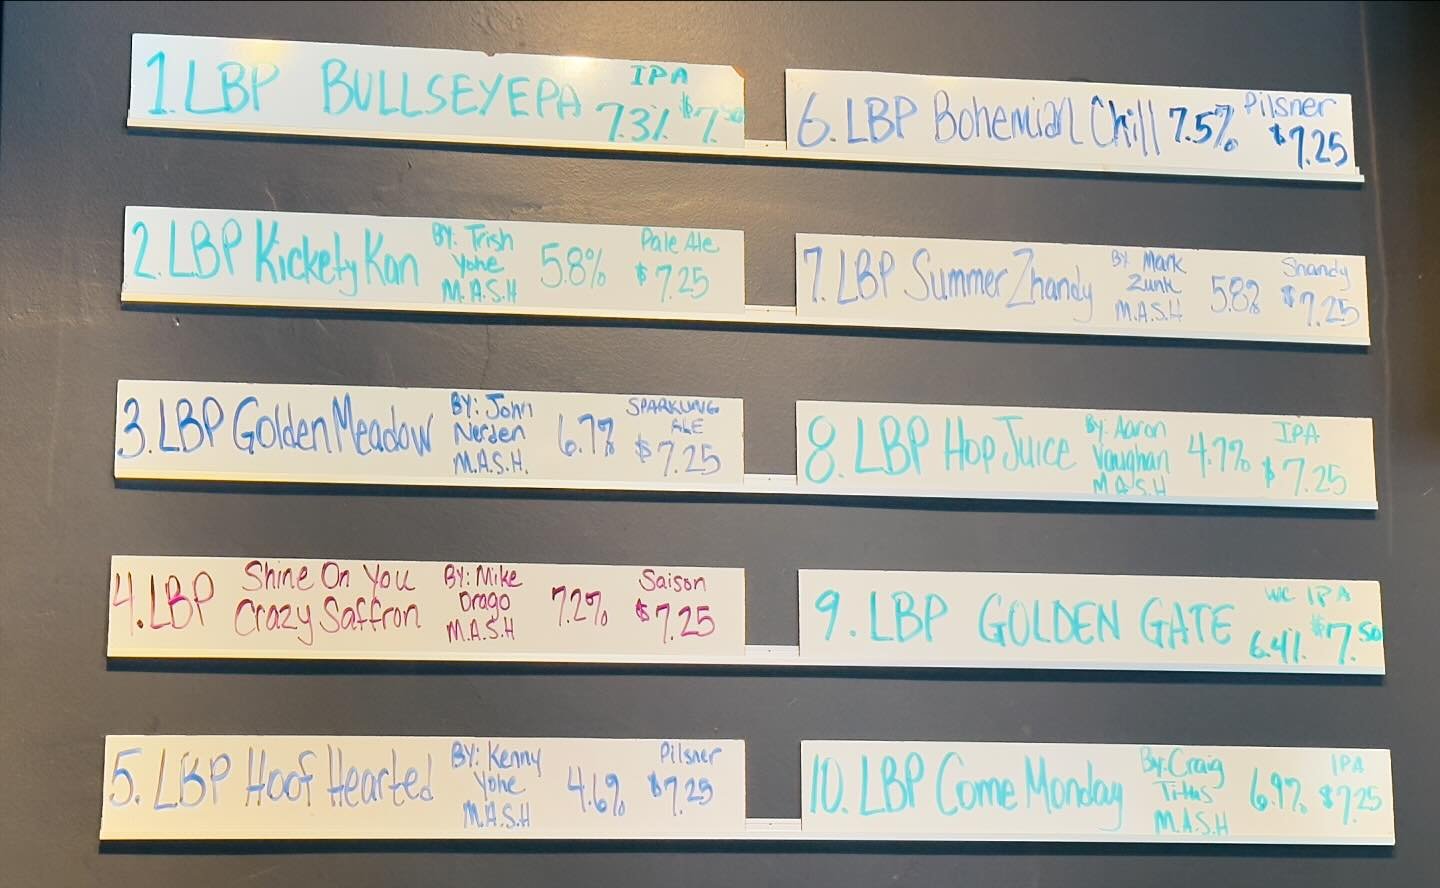 1. LBP BULLSEYEPA IPA 7.3% $7.50
2. LBP Kickety Kan By: Trish Yohe M.A.S.H 5.8% Pale Ale $7.25
3. LBP Golden Meadow By: John Nerden M.A.S.H. 6.7% SPARKLING ALE $7.25
4. LBP Shine On You Crazy Saffron By: Mike Drago M.A.S.H 7.2% Saison $7.25
5. LBP Hoof Hearted By: Kenny Yohe M.A.S.H 4.6% Pilsner $7.25
6. LBP Bohemian Chill 7.5% Pilsner $7.25
7. LBP Summer Zhandy By Mark Zunk M.A.S.H 5.8% Shandy $7.25
8. LBP Hop Juice By: Aaron Vaughan M.A.S.H 4.7% IPA $7.25
9. LBP GOLDEN GATE WC IPA 6.4% $7.50
10. LBP Come Monday By: Craig Titus M.A.S.H 6.9% IPA $7.25